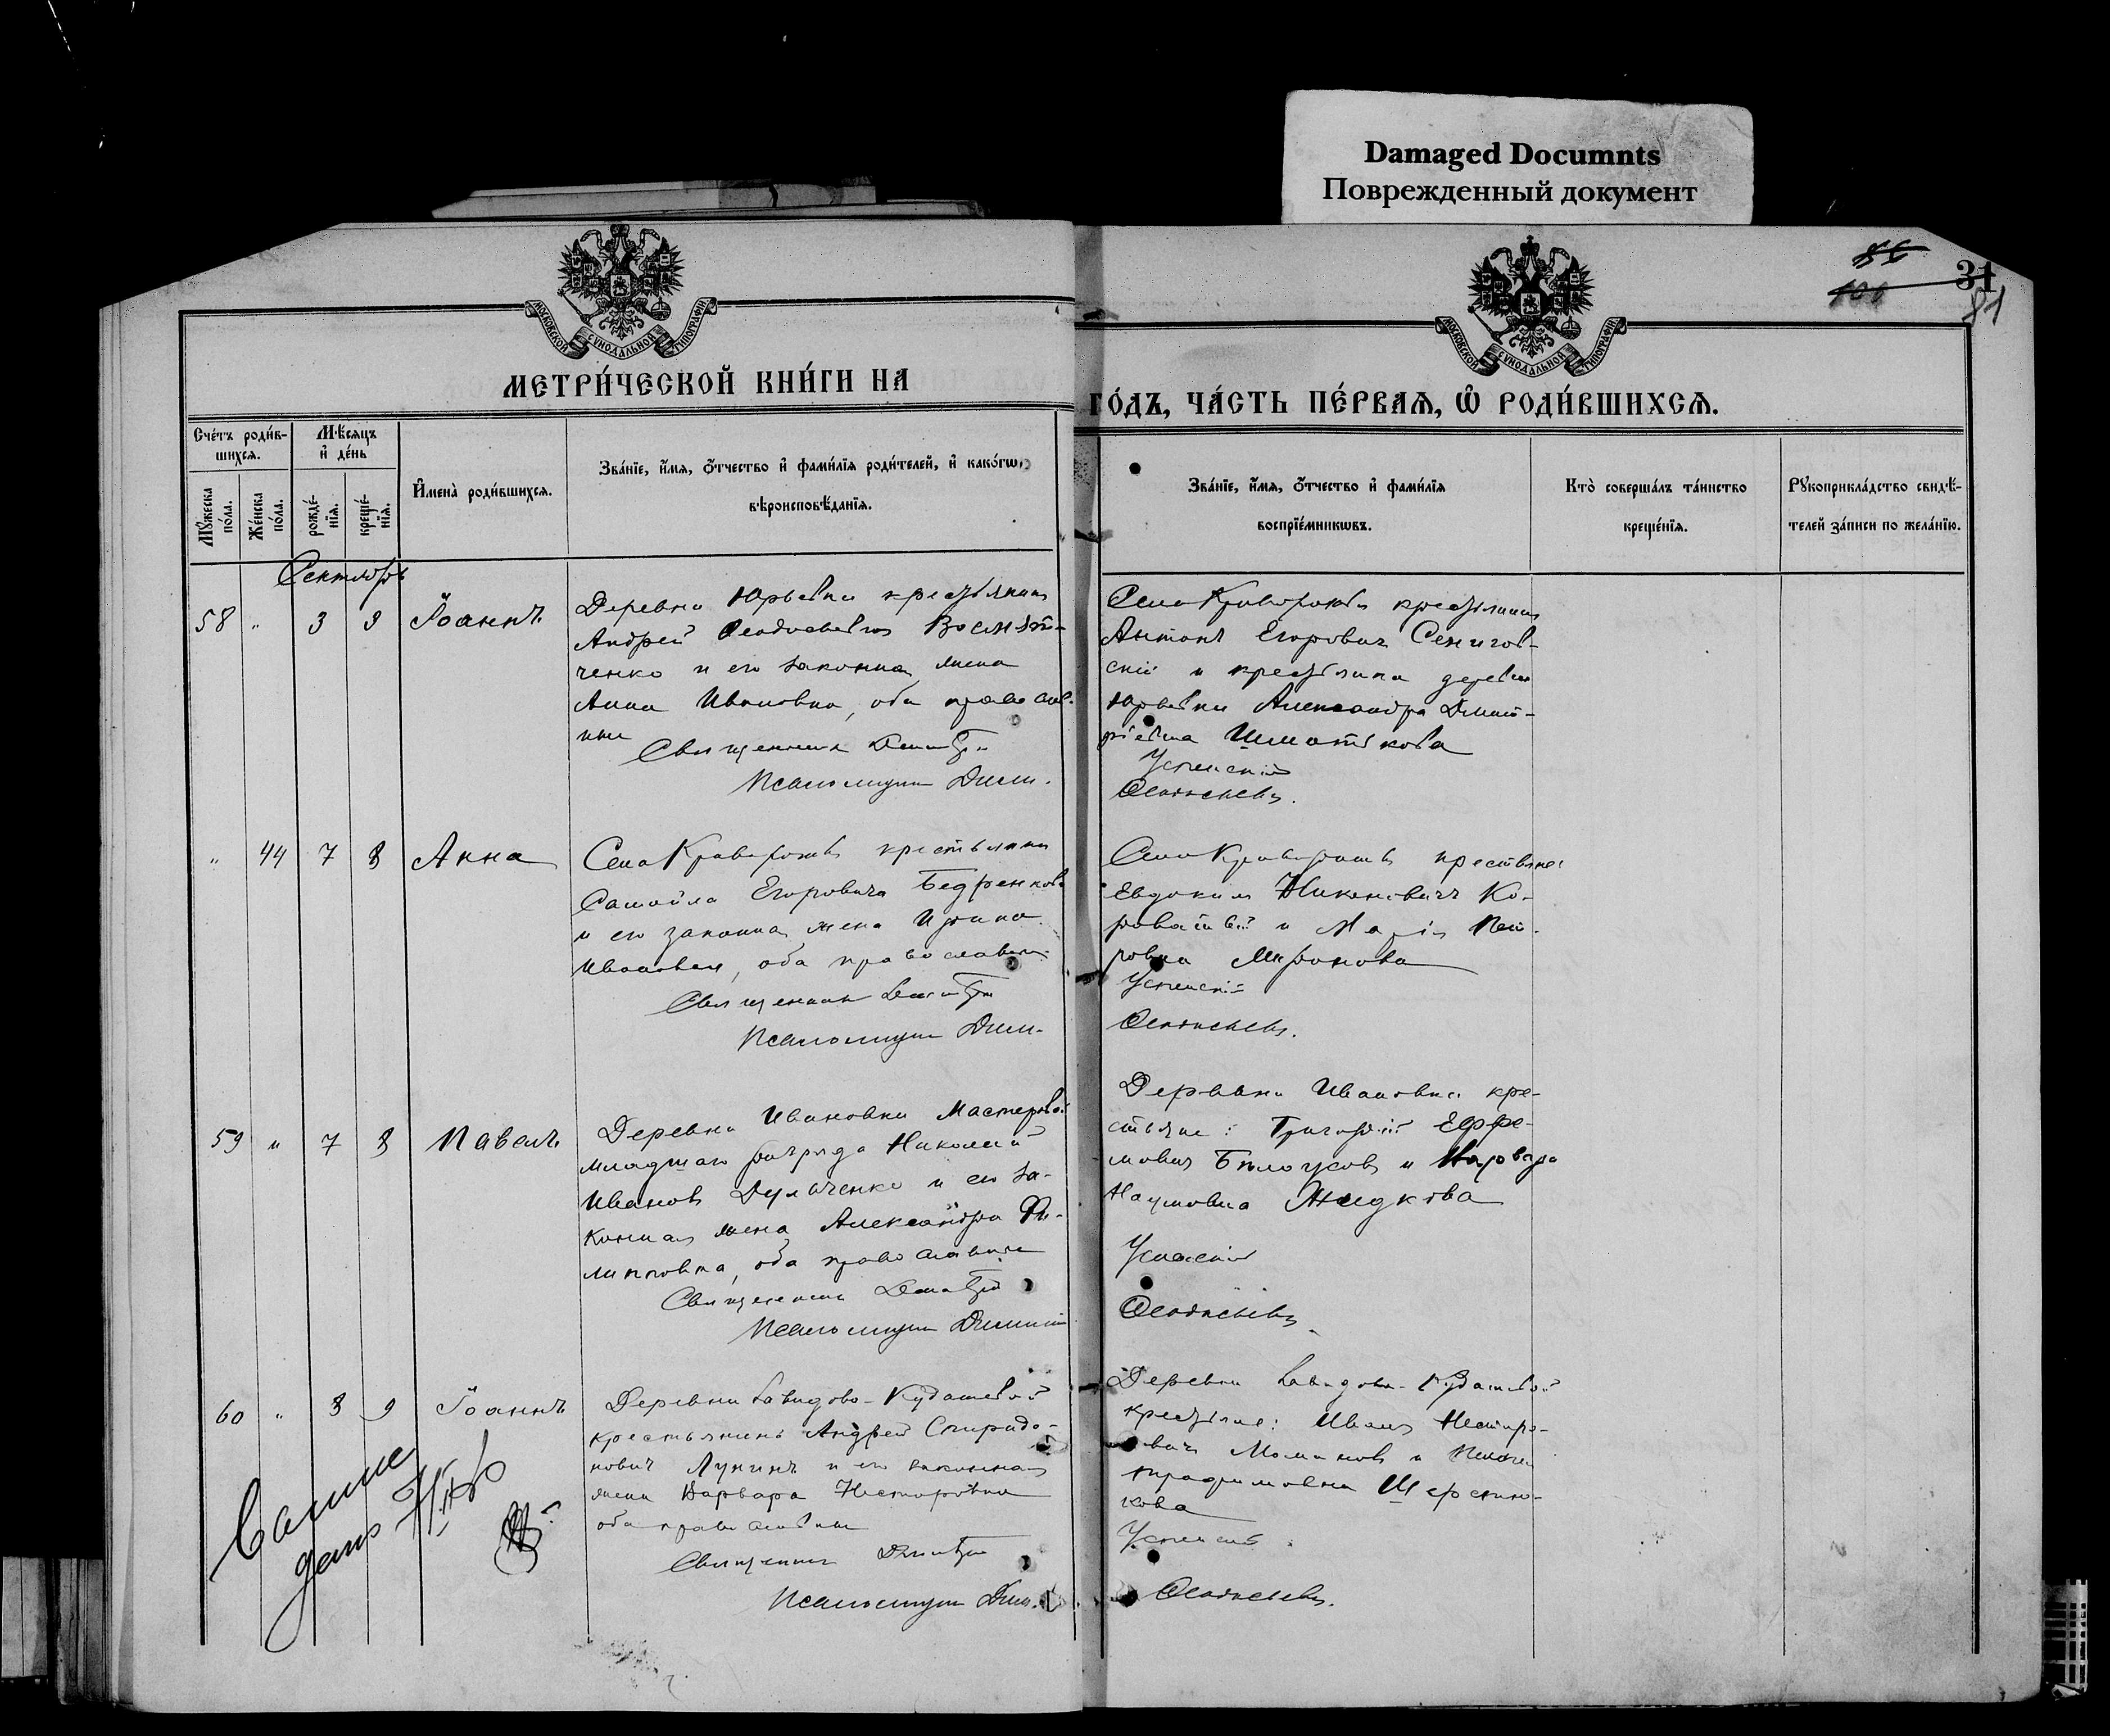 Damaged Documnts
Поврежденный документ
86
101
31
81
МОСКОВСКОЙ СѴНОДАЛЬНОЙ ТИПОГРАФІИ
МОСКОВСКОЙ СѴНОДАЛЬНОЙ ТИПОГРАФІИ
МЕТРИ́ЧЕСКОЙ КНИ́ГИ НА
ГО́ДЪ, ЧА́СТЬ ПЕ́РВАЯ, Ѡ҆ РОДИ́ВШИХСЯ.
Сче́тъ роди́в-
шихся.
Мѣ́сяцъ
и҆ де́нь
Мꙋ́жеска
по́ла.
Же́нска
по́ла.
рожде́-
нїя.
креще́-
нїя.
И҆мена̀ роди́вшихся.
Зва́нїе, и҆́мя, ѻ҆́тчество и҆ фами́лїя роди́телей, и҆ како́гѡ
вѣроисповѣ́данїя.
Зва́нїе, и҆́мя, ѻ҆́тчество и҆ фами́лїя
воспрїе́мникѡвъ.
Кто̀ соверша́лъ та́инство
креще́нїя.
Рꙋкоприкла́дство свидѣ́-
телей за́писи по жела́нїю.
Сентябрь
58 " 3 9 Іоаннъ
Деревни Юрьевки крестьянинъ
Андрей Ѳеодосьевичъ
ченко и его законная жена
Анна Ивановна, оба православ-
ные
Священникъ Димитрій
Псаломщикъ Дим.
крестьянинъ
Антонъ Егоровичъ Сенигов-
скій и крестьянка деревни
Юрьевки Александра Димит-
ріевна Шматкова
Успенскій
" 44 7 8 Анна
Село крестьянинъ
Самойло Егоровичъ Бедренковъ
и его законная жена Ирина
Ивановна, оба православные
Священникъ Димитрій
Псаломщикъ Дим-
Село крестьяне:
Евдокимъ Никоновичъ Ко-
роватый и Марія Пет-
ровна Миронова
Успенскій
59 " 7 8 Павелъ
Деревни Ивановки Мастеровой
младшаго разряда Николай
Ивановъ Дульченко и его за-
конная жена Александра Фи-
липповна, оба православные
Священникъ Димитрій
Псаломщикъ Димит
Деревни Ивановки кре-
стьяне: Григорій Ефре-
мовичъ Бѣлоусовъ и Варвара
Наумовна Жидкова
Успенскій
60 " 8 9 Іоаннъ
Деревни Давидово-Кудашевой
крестьянинъ Андрей Спиридо-
новичъ Лунинъ и его законная
жена Варвара Несторовна
оба православные
Священникъ Димитрій
Псаломщикъ Дим.
Деревни Давидово-Кудашевой
крестьяне: Иванъ Нестеро-
вичъ и
Шерстню-
кова
Успенскій
дано